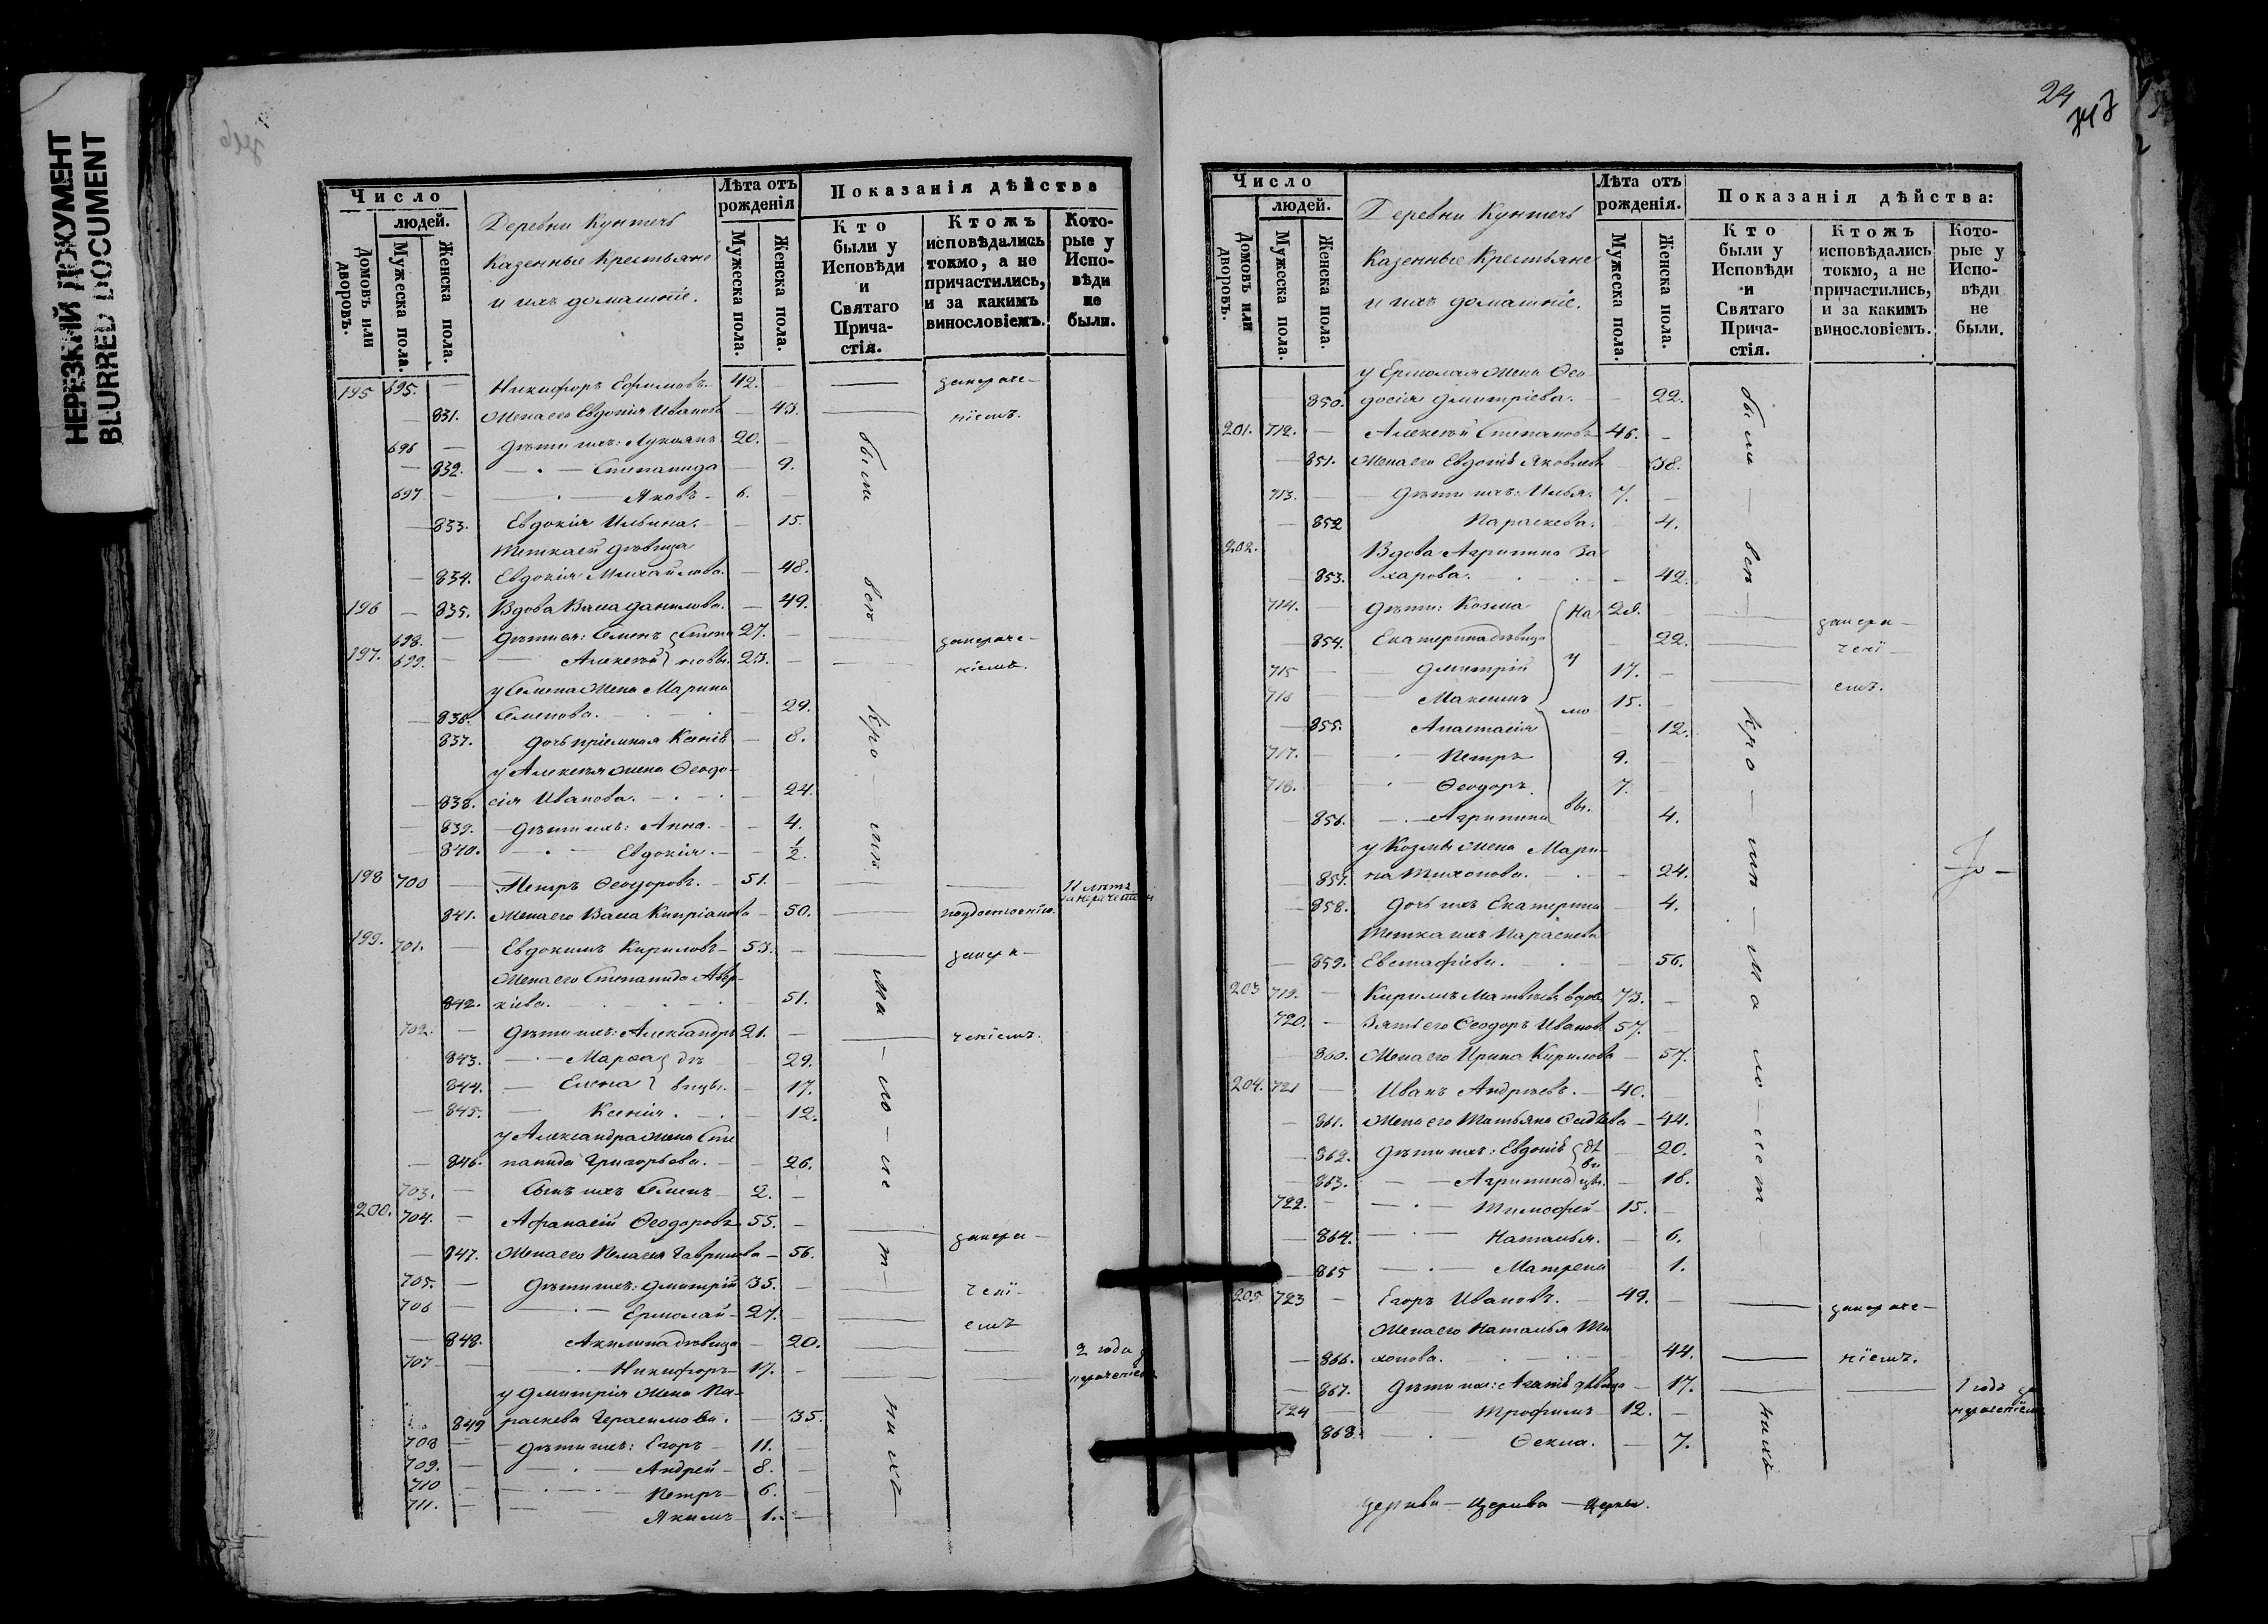 НЕРЕЗКИЙ ДОКУМЕНТ
BLURRED DOCUMENT
Число
людей.
Домовъ или дворовъ.
Мужеска пола.
Женска пола.
Деревни Кунтечь
Казенные Крестьяне
и ихъ домашніе.
Лѣта отъ рожденія
Мужеска пола.
Женска пола.
Показанія дѣйства
Кто были у Исповѣди и Святаго Прича-стія.
Ктожъ исповѣдались токмо, а не причастились, и за какимъ винословіемъ.
Кото-рые у Испо-вѣди не были.
195 695. — Никифоръ Ефимовъ. 42. —
831. Жена его Евдокія Иванова — 43.
696 — Дѣти ихъ: Лукоянъ. 20. —
— 832. — Степанида — 9.
697 — — Яковъ — 6. —
— 833. Евдокія Ильина. — 15.
Тетка ей дѣвица
— 834. Евдокія Михайлова. — 48.
196 — 835. Вдова Васа Данилова. — 49.
698. — Дѣти ея: Семенъ Степа 27. —
197. 699. — Алексѣй новы. 23. —
у Семена жена Марина
— 836. Семенова. — 29.
837. дочь пріемная Ксенія — 8.
у Алексѣя жена Ѳеодо-
— 838. сія Иванова. — 24.
— 839. — Дѣти ихъ: Анна. — 4.
— 840. — Евдокія. — 1/2.
198 700 — Петръ Ѳеодоровъ. — 51. —
841. Жена его Васа Кипріанова — 50.
199. 701. — Евдокимъ Кириловъ — 53. —
Жена его Степанида Авер-
842. кіева. — 51.
702. — Дѣти ихъ: Александръ 21. —
843. — Марѳа дѣ — 29.
844. — Елена вицы. — 17.
— 845. — Ксенія. — 12.
у Александра жена Сте
— 846. панида Григорьева. — 26.
703. — Сынъ ихъ Семенъ — 2. —
200. 704. — Афанасій Ѳеодоровъ 55. —
— 847. Жена его Пелагея Гаврилова — 56.
705. — Дѣти ихъ: Дмитрій 35. —
706 — Ермолай — 27. —
— 848. Акилина дѣвица — 20.
707 — Никифоръ — 17. —
у Дмитрія жена Па-
849 раскева Герасимова. — 35.
708 — Дѣти ихъ: Егоръ — 11. —
709. — Андрей — 8. —
710 — Петръ — 6. —
711. — Якимъ — 1. —
были
всѣ
кро
мѣ
ма — ло — ле
т —
нихъ
запраче-
ніемъ.
2 года
24
Число
людей.
Домовъ или дворовъ.
Мужеска пола.
Женска пола.
Деревни Кунтечь
Казенные Крестьяне
и ихъ домашніе.
Лѣта отъ рожденія.
Мужеска пола.
Женска пола.
Показанія дѣйства:
Кто были у Исповѣди и Святаго Прича-стія.
Ктожъ исповѣдались токмо, а не причастились, и за какимъ винословіемъ.
Кото-рые у Испо-вѣди не были.
у Ермолая жена Ѳео-
850. досія Дмитріева. — 22.
201. 712. — Алексѣй Степановъ 46. —
— 851. Жена его Евдокія Яковлева — 38.
713. — Дѣти ихъ: Илья. 7. —
— 852 Параскева. — 4.
202. Вдова Агрипина За
— 853. харова. — 42.
714. — Дѣти: Козма На 20. —
— 854. Екатерина дѣвица — 22.
715 — Дмитрій у 17. —
716 Максимъ 15. —
— 855. Анастасія мо — 12.
717. — Петръ 9. —
718. — Ѳеодоръ. 7. —
— 856. — Агрипина вы. 4.
у Козмы жена Мари-
— 857. на Тихонова. — 24.
— 858. Дочь ихъ Екатерина — 4.
Тетка ихъ Параскева
— 859. Евстафіева. — 56.
203 719. — Кирилъ Матвѣевъ вдов. 73. —
720. — Зять его Ѳеодоръ Ивановъ 57. —
— 860. Жена его Ирина Кирилова — 57.
204. 721 — Иванъ Андреевъ. — 40. —
— 861. Жена его Татьяна — 44.
— 862. Дѣти ихъ: Евдокія дѣ — 20.
— 863. — Агрипина вицы. — 18.
722. — Тимофей — 15. —
— 864. — Наталья. — 6.
— 865 — Матрена 1.
205 723 — Егоръ Ивановъ. — 49. —
Жена его Наталья Ти
— 866. хонова. — 44.
— 867. Дѣти ихъ: Агаѳія дѣвица — 17.
724 — Трофимъ — 12. —
868. — Ѳекла. — 7.
были — всѣ —
кро — мѣ — ма
ло — лет —
нихъ
1 годъ